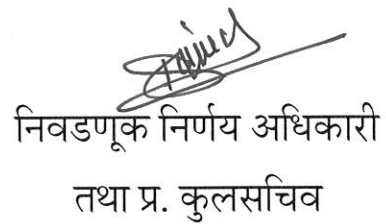 निवडणूक निर्णय अधिकारी
तथा प्र. कुलसचिव